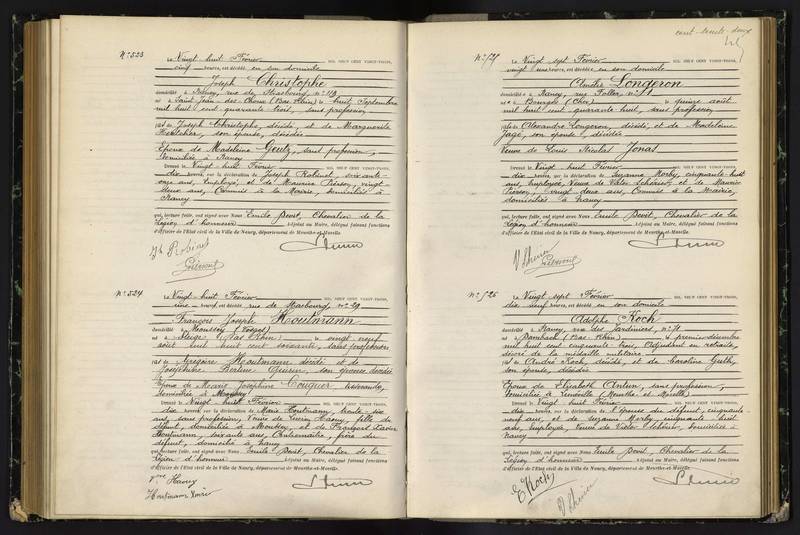 N° 523
Le Vingt-huit Février MIL NEUF CENT VINGT-TROIS,
cinq heures, est décédé en son domicile
Joseph Christophe
domicilié à Nancy, rue de Strasbourg, n° 119
né à Saint Jean-des-Choux (Bas Rhin) le huit Septembre
mil huit cent quarante trois, sans profession
fils de Joseph Christophe, décédé, et de Marguerite
son épouse, décédée
Epoux de Madeleine Gentz, sans profession,
domiciliée à Nancy
Dressé le Vingt-huit Février MIL NEUF CENT VINGT-TROIS,
dix heures, sur la déclaration de Joseph Robinet, soixante
onze ans, Employé, et de Maurice Pierson, vingt
deux ans, Commis à la Mairie, domiciliés à
Nancy
qui, lecture faite, ont signé avec Nous Emile Devit, Chevalier de la
Légion d'honneur Adjoint au Maire, délégué faisant fonctions
d'officier de l'Etat civil de la Ville de Nancy, département de Meurthe-et-Moselle
Jh Robinet
N° 524
Le Vingt-huit Février MIL NEUF CENT VINGT-TROIS,
heures, est décédé rue de Strasbourg, n° 29
François Joseph Houtmann
domicilié à Moussey (Vosges)
né à (Bas Rhin) le vingt neuf
Août mil huit cent soixante, sans profession
fils de Grégoire Houtmann décédé et de
Joséphine son épouse décédée
Epoux de Marie Joséphine Couquer
domiciliée à Moussey
Dressé le Vingt huit Février MIL NEUF CENT VINGT-TROIS,
dix heures, sur la déclaration de Marie Houtmann, trente six
ans, sans profession, fille du
défunt, domiciliée à Moussey, et de François Xavier
Houtmann, soixante ans, Contremaître, frère du
défunt, domicilié à Nancy
qui, lecture faite, ont signé avec Nous Emile Devit, Chevalier de la
Légion d'honneur Adjoint au Maire, délégué faisant fonctions
d'officier de l'Etat civil de la Ville de Nancy, département de Meurthe-et-Moselle
Houtmann
cent-trente-deux
N° 525
Le Vingt sept Février MIL NEUF CENT VINGT-TROIS,
vingt heures, est décédée en son domicile
Amélie Longeron
domiciliée à Nancy, rue n° 11
née à Bourges (Cher) le quinze août
mil huit cent quarante huit, sans profession
fille de Alexandre Longeron, décédé, et de Madeleine
Jagé, son épouse, décédée
Veuve de Louis Nicolas Jonas
Dressé le Vingt huit Février MIL NEUF CENT VINGT-TROIS,
dix heures, sur la déclaration de Suzanne Morby, cinquante-huit
ans, Employée, Veuve de Victor Schérier, et de Maurice
Pierson, vingt deux ans, Commis à la Mairie,
domiciliés à Nancy
qui, lecture faite, ont signé avec Nous Emile Devit, Chevalier de la
Légion d'honneur Adjoint au Maire, délégué faisant fonctions
d'officier de l'Etat civil de la Ville de Nancy, département de Meurthe-et-Moselle
N° 526
Le Vingt-sept Février MIL NEUF CENT VINGT-TROIS,
dix neuf heures, est décédé en son domicile
Adolphe Koch
domicilié à Nancy, rue des Jardiniers, n° 71
né à Dambach (Bas Rhin) le premier décembre
mil huit cent cinquante trois, Adjudant en retraite,
décoré de la médaille militaire
fils de André Koch, décédé, et de Caroline Guth,
son épouse, décédée
Epoux de Elisabeth Antun, sans profession,
domiciliée à Lunéville (Meurthe et Moselle)
Dressé le Vingt huit Février MIL NEUF CENT VINGT-TROIS,
dix heures, sur la déclaration de l'épouse du défunt, cinquante
neuf ans, et de Suzanne Morby, cinquante huit
ans, employée, Veuve de Victor Schérier, domiciliée à
Nancy
qui, lecture faite, ont signé avec Nous Emile Devit, Chevalier de la
Légion d'honneur Adjoint au Maire, délégué faisant fonctions
d'officier de l'Etat civil de la Ville de Nancy, département de Meurthe-et-Moselle
E Koch